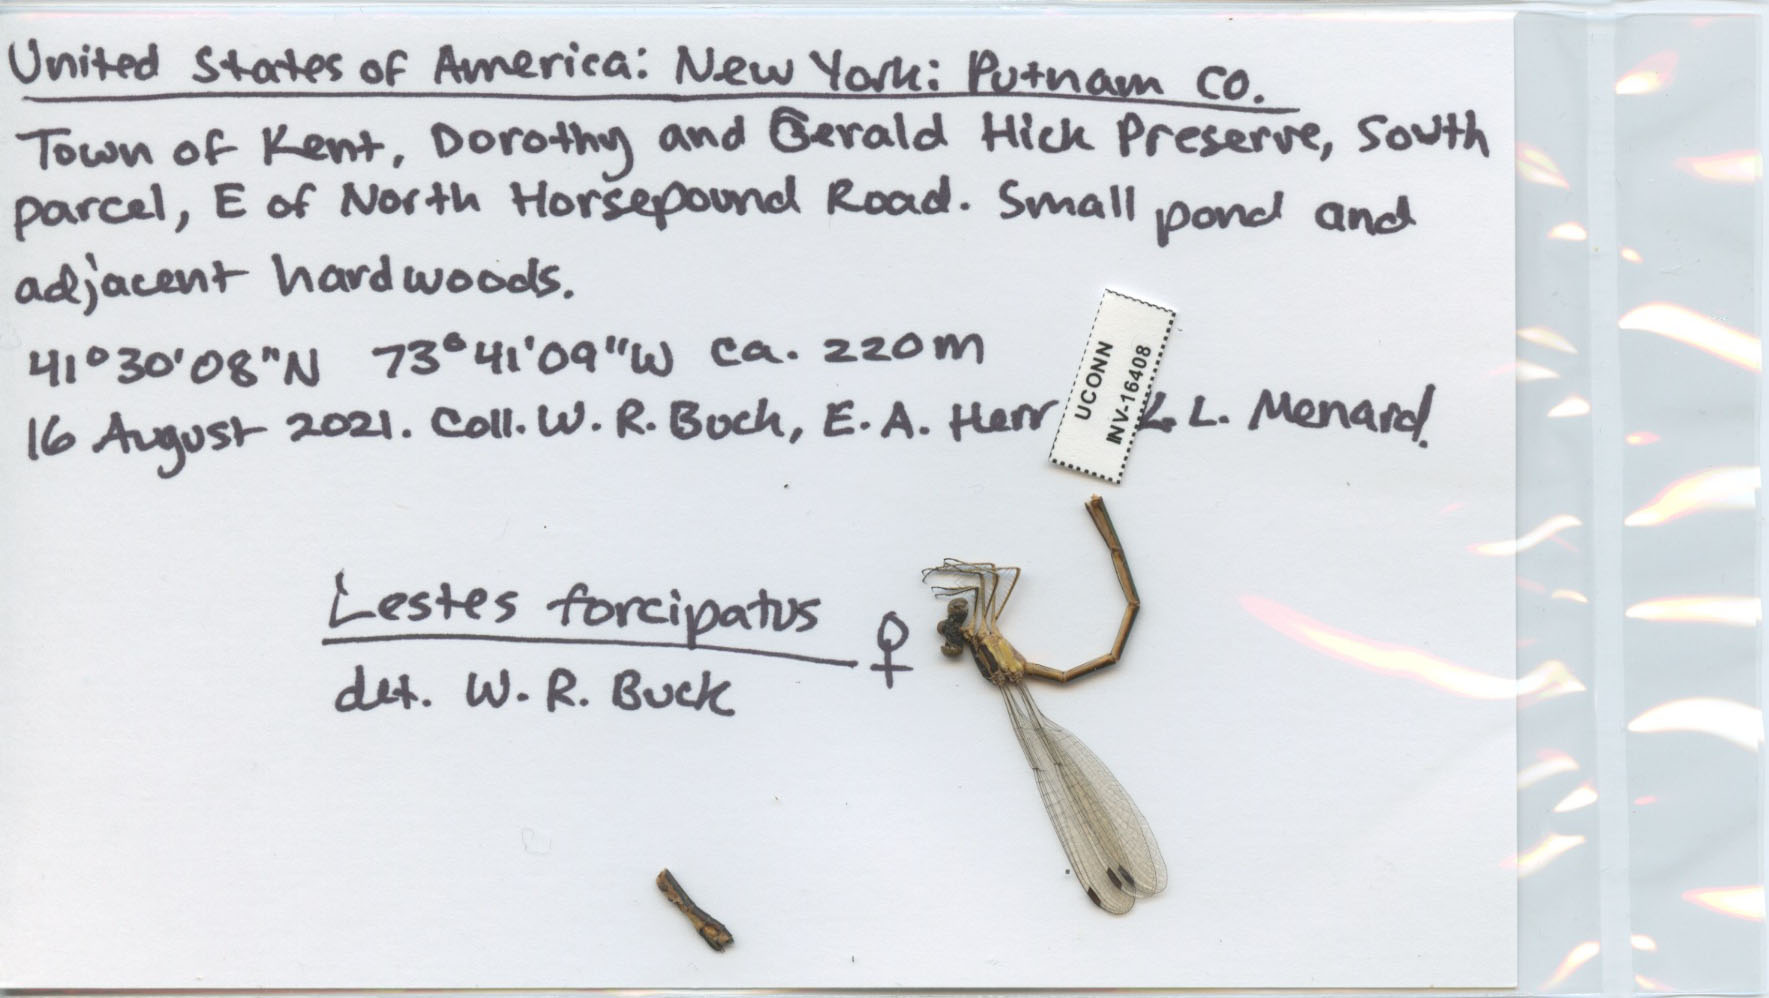 United States of America: New York: Putnam Co.
Town of Kent, Dorothy and Gerald Hick Preserve, South
parcel, E of North Horsepound Road. Small pond and
adjacent hardwoods.
41°30'08"N 73°41'09"W ca. 220m
16 August 2021. Coll. W. R. Buck, E. A. Herr L. Menard.
UCONN
INV-16408
Lestes forcipatus ♀
det. W. R. Buck